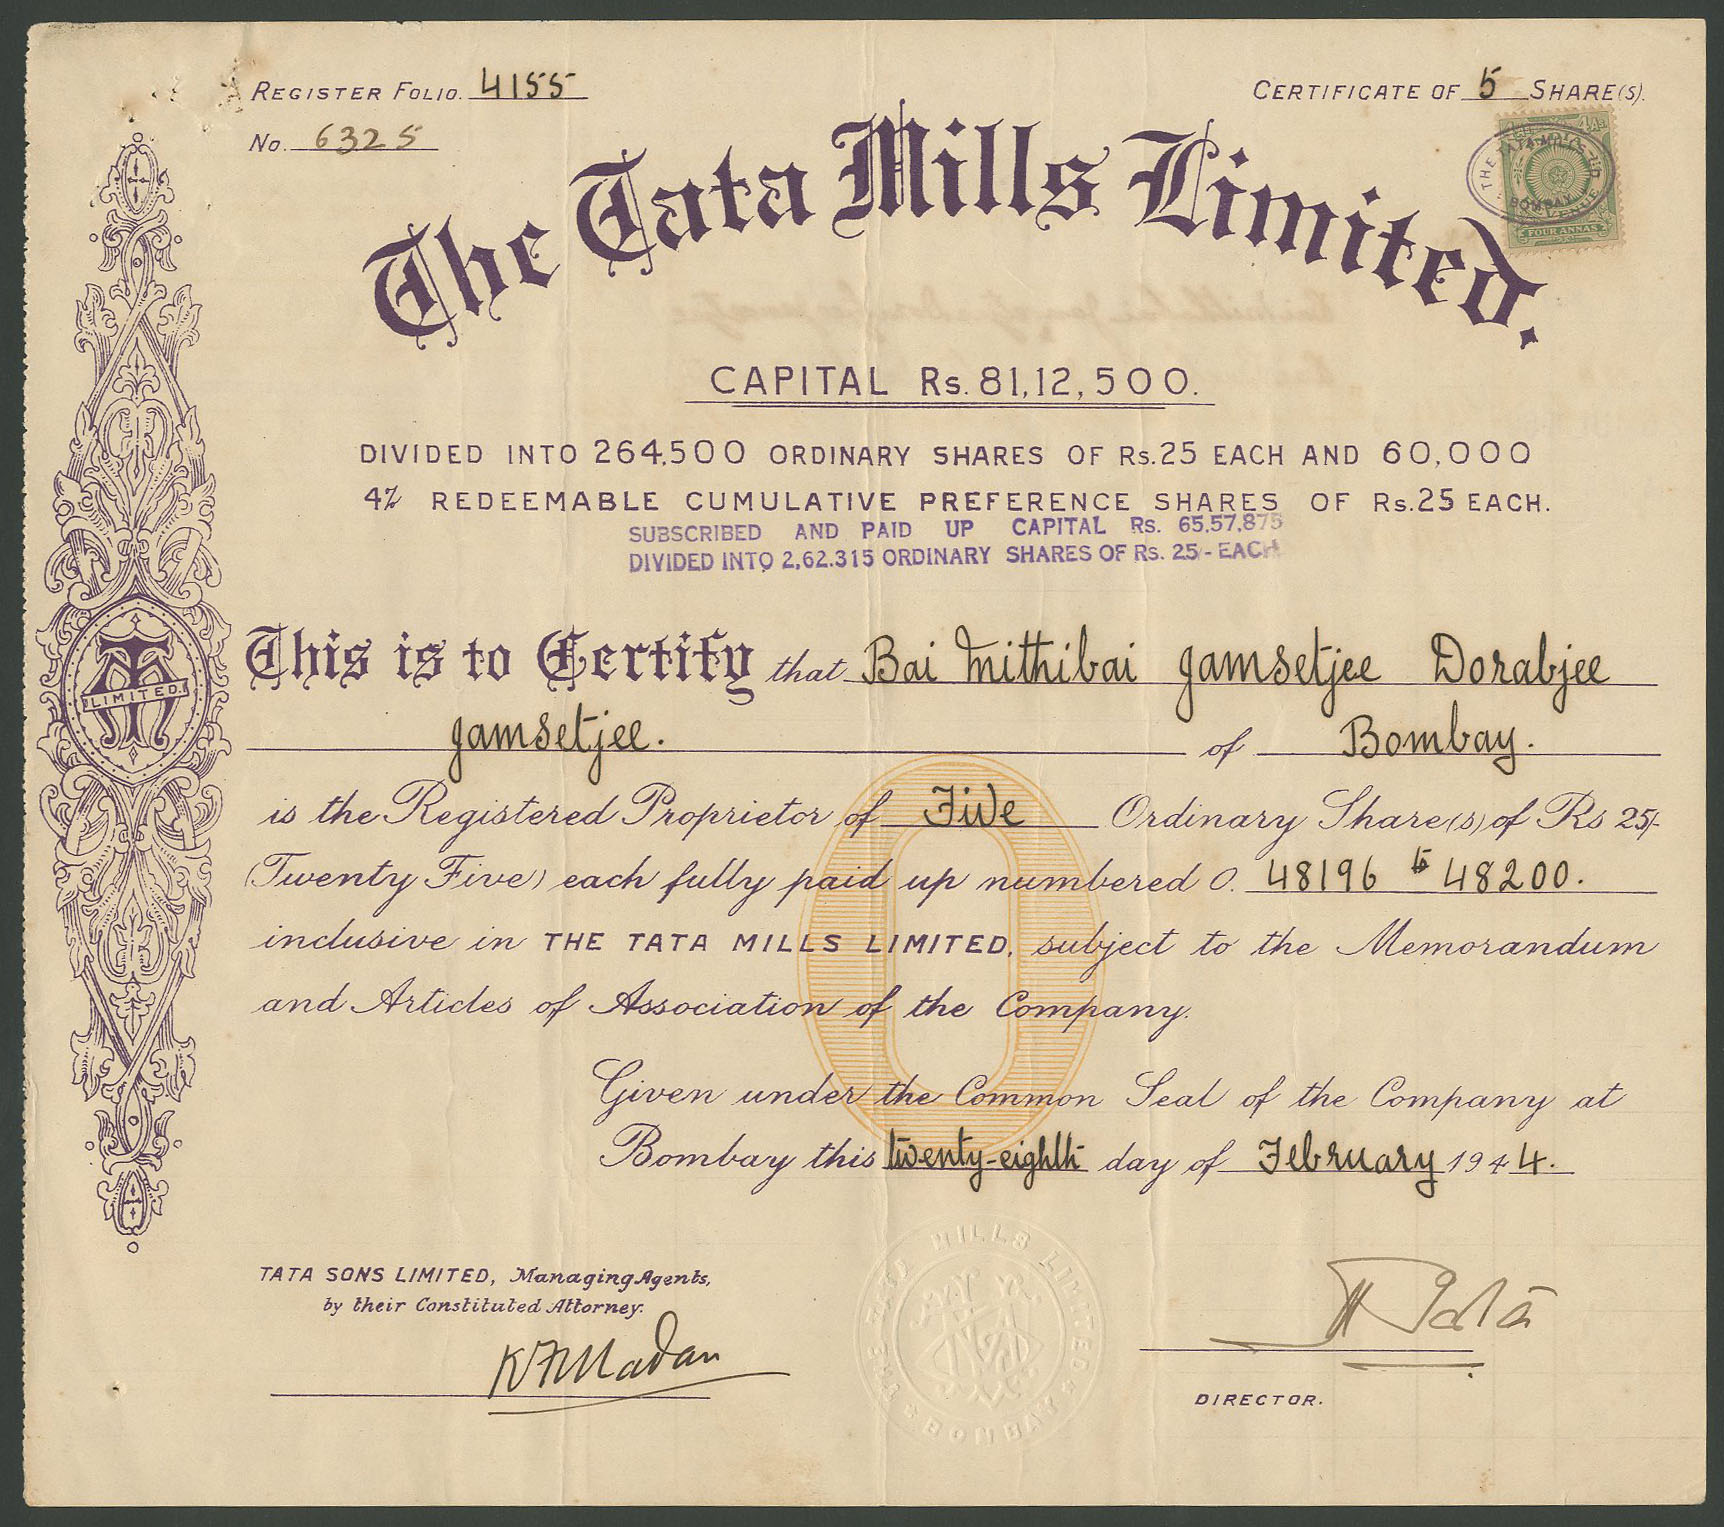 REGISTER FOLIO. 4155
CERTIFICATE OF 5 SHARE(S).
No. 6325
4 As
THE TATA MILLS LTD
BOMBAY
FOUR ANNAS
The Tata Mills Limited.
CAPITAL Rs. 81,12,500.
DIVIDED INTO 264,500 ORDINARY SHARES OF Rs.25 EACH AND 60,000
4% REDEEMABLE CUMULATIVE PREFERENCE SHARES OF Rs.25 EACH.
SUBSCRIBED AND PAID UP CAPITAL Rs. 65,57,875
DIVIDED INTO 2,62.315 ORDINARY SHARES OF Rs. 25/- EACH
LIMITED.
This is to Certify that Bai Mithibai Jamsetjee Dorabjee
Jamsetjee. of Bombay.
is the Registered Proprietor of Five Ordinary Share(s) of Rs 25/-
(Twenty Five) each fully paid up numbered O. 48196 to 48200.
inclusive in THE TATA MILLS LIMITED, subject to the Memorandum
and Articles of Association of the Company.
Given under the Common Seal of the Company at
Bombay this twenty-eighth day of February 1944.
TATA SONS LIMITED, Managing Agents,
by their Constituted Attorney.
THE TATA MILLS LIMITED
BOMBAY
Tata
DIRECTOR.